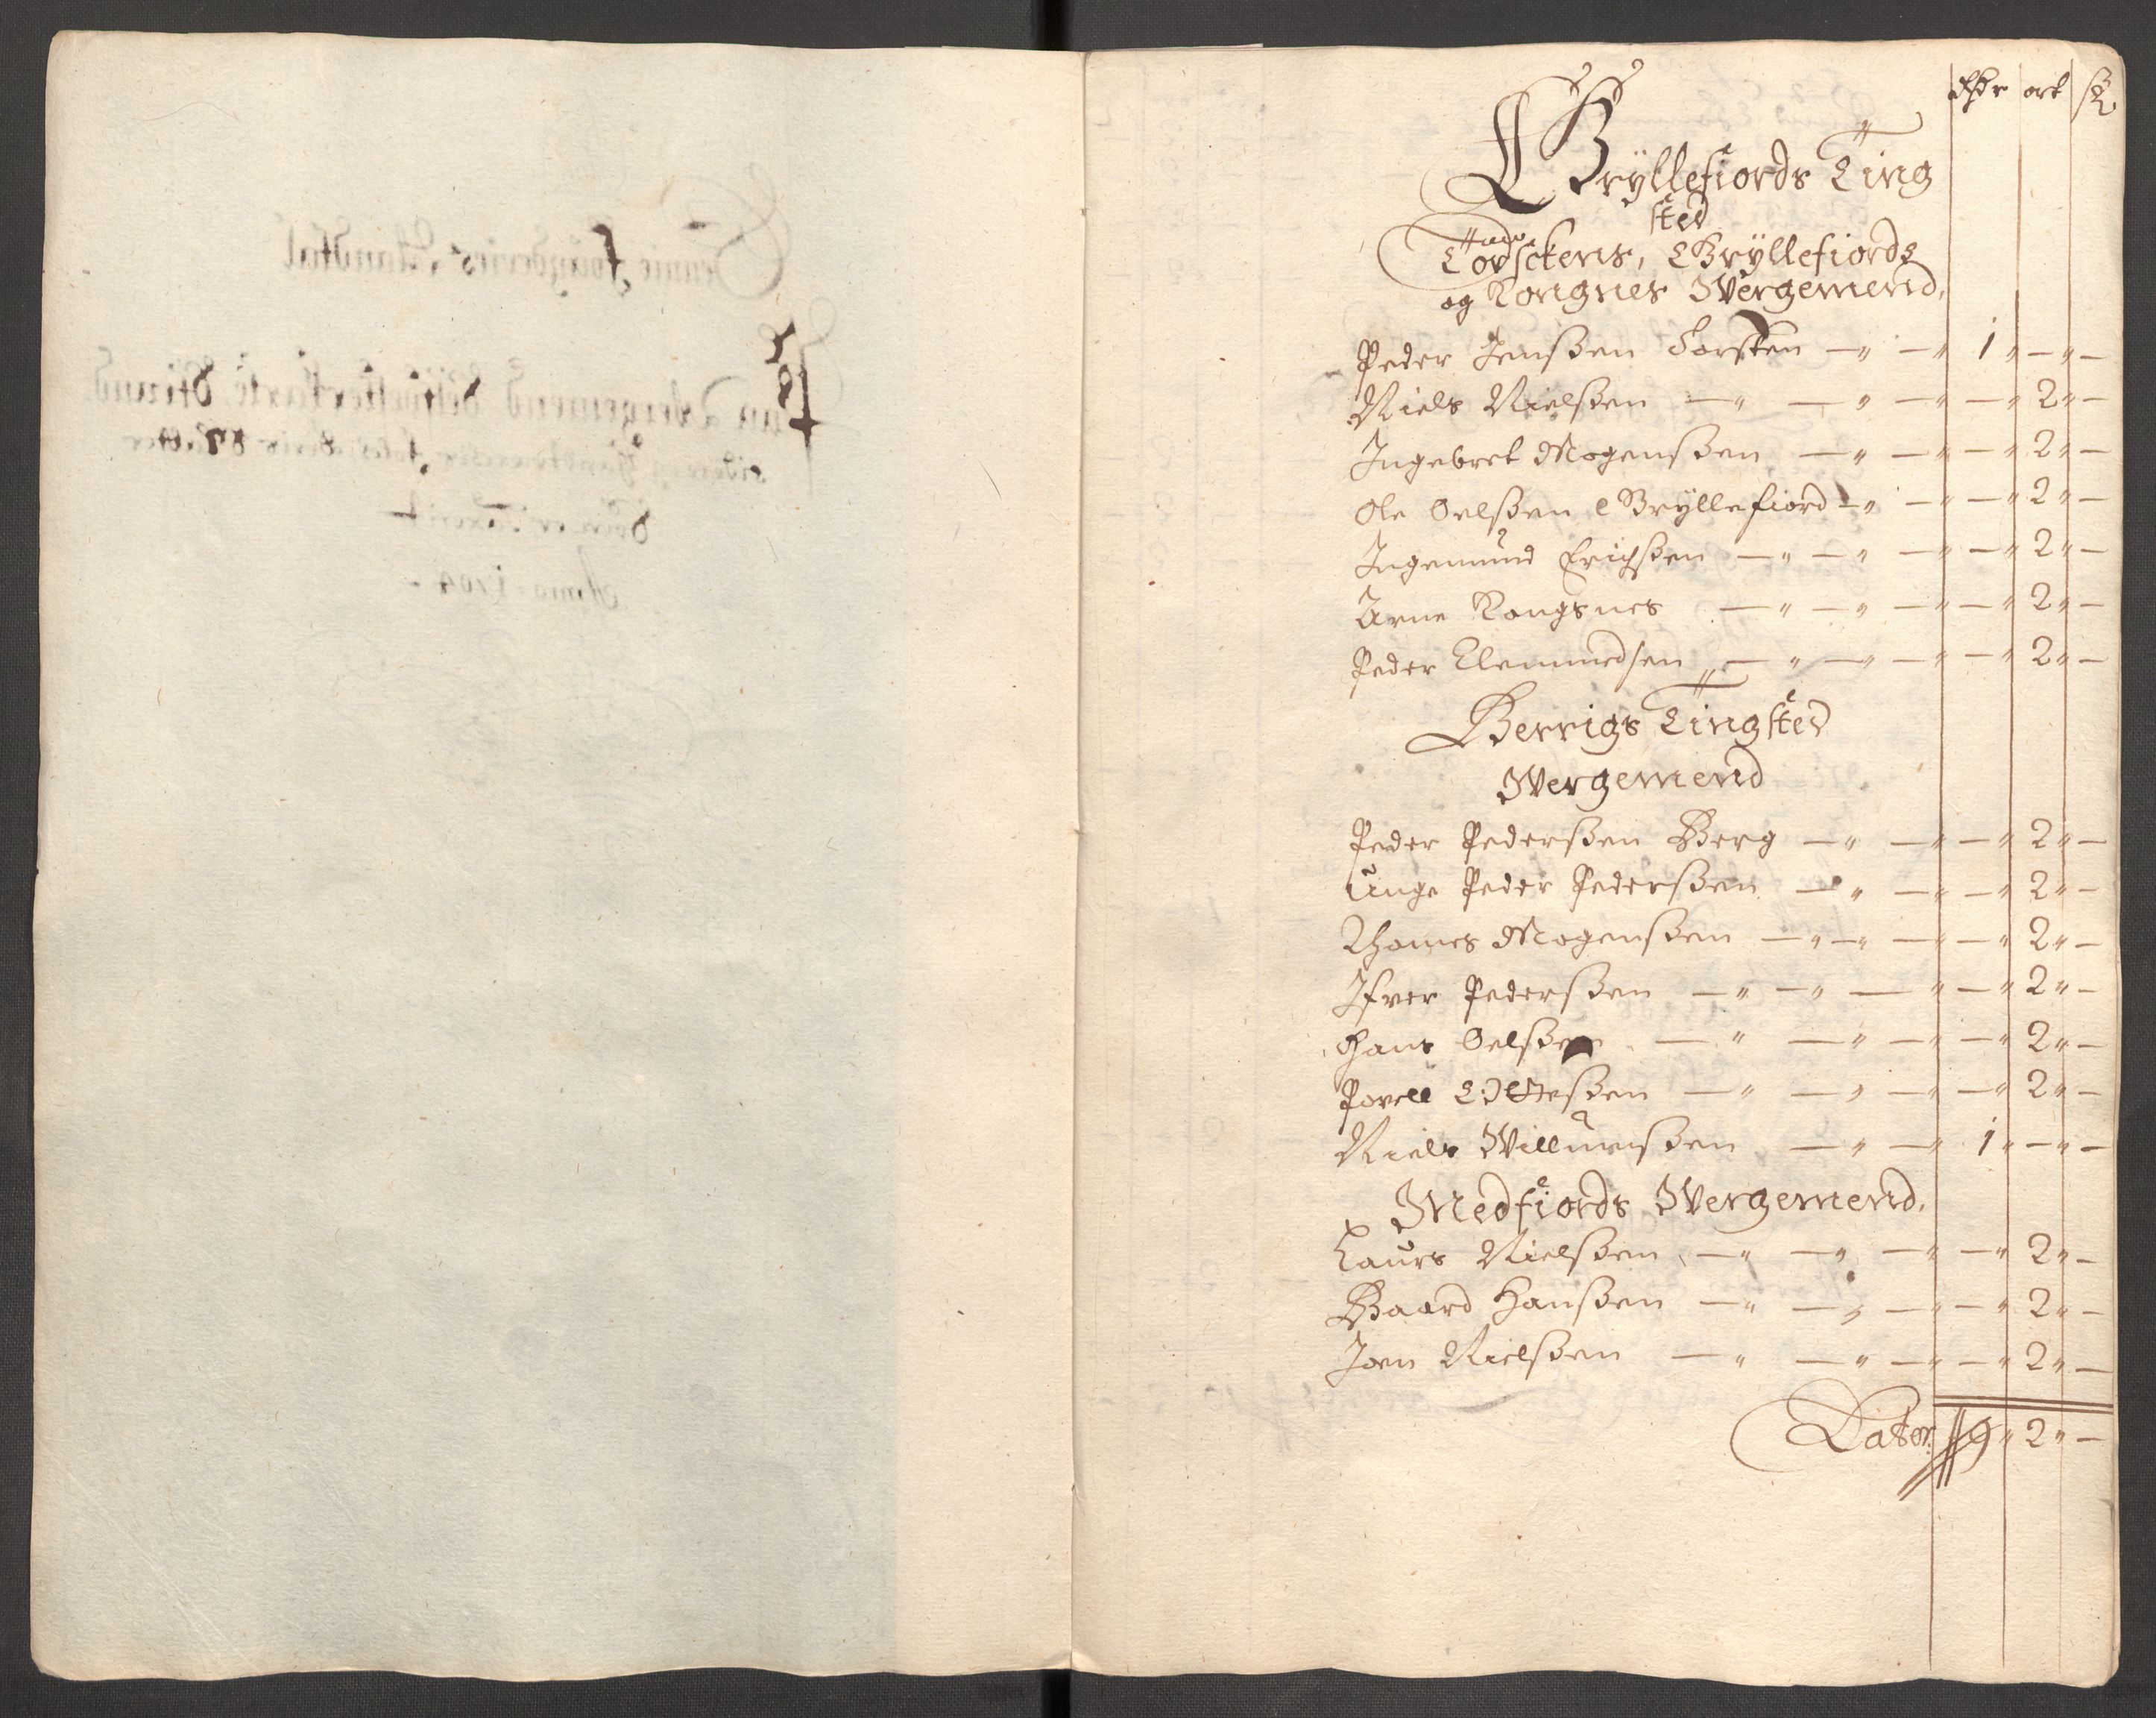 Rdr ort sk
Gryllefiords Ting
sted
Torsckens, Gryllefiords
og Rongnes Wergemend.
Peder Jenssen Torsken — " — " 1 " — " —
Niels Nielssen — " — " — " — " 2 " —
Ingebret Mogenssen — " — " — " 2 " —
Ole Oelssen Gryllefiord — " — " — " 2 " —
Ingemund Erichssen — " — " — " — " 2 " —
Arne Rongsnes — " — " — " — " 2 " —
Peder Clemmedsen — " — " — " — " 2 " —
Berrigs Tingsted
Wergemend
Peder Pederssen Berg — " — " — " 2 " —
Unge Peder Pederssen — " — " — " 2 " —
Thomes Mogenssen — " — " — " — " 2 " —
Ifver Pederssen — " — " — " — " 2 " —
Hans Oelssen — " — " — " — " 2 " —
Povell Ottessen — " — " — " — " 2 " —
Niels Willumssen — " — " 1 " — " —
Medfiords Wergemend.
Laurs Nielssen — " — " — " — " 2 " —
Baard Hanssen — " — " — " — " 2 " —
Joen Nielssen — " — " — " — " 2 " —
Later 9 " 2 " —